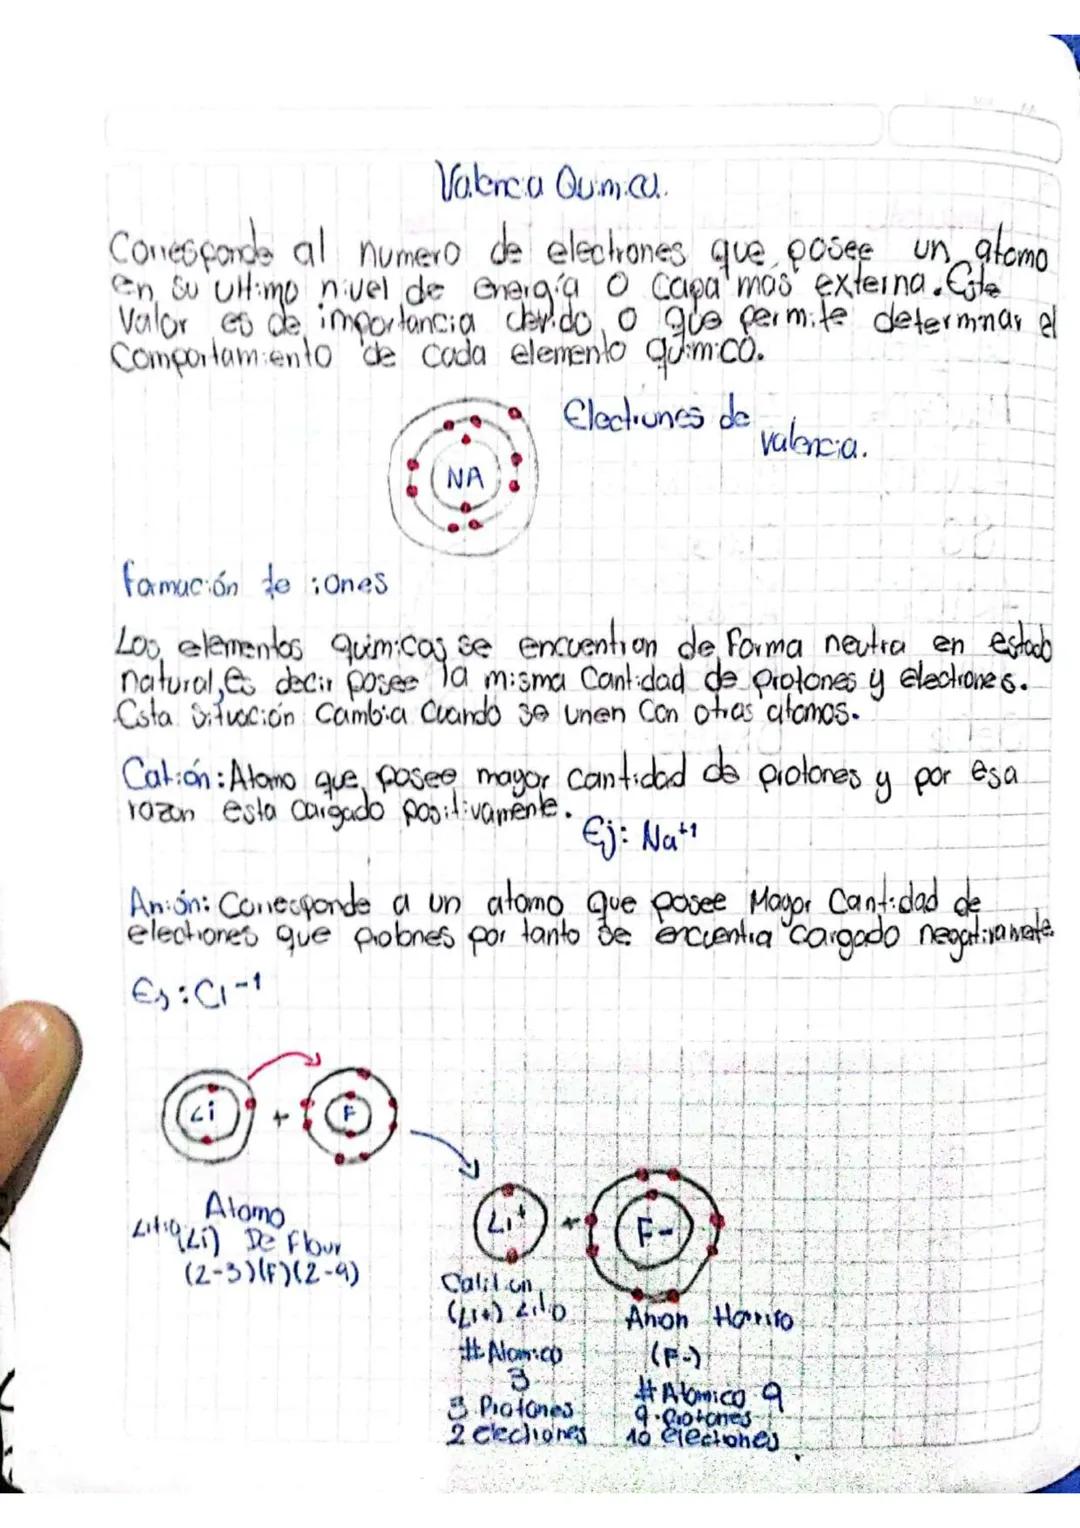 Valencia Quimica.
Corresponde al numero de electrones que posee un atomo
en su ultimo nivel de energía o capa mas externa. Este
Valor es de importancia devido o que permite determinar el
Comportamiento de cada elemento quimico.
Electrones de
valencia.
NA
Formación de iones
Los elementos quimicos se encuentran de Forma neutra en estado
natural, es decir posee la misma Cantidad de protones y electrones.
Esta situación Cambia Cuando se unen Con otras atomos.
Catión: Atomo que posee mayor cantidad de protones y por esa
razon esta cargado positivamente.
Ej: Na+1
Anión: Corresponde a un atomo que posee Mayor Cantidad de
electrones que protones por tanto se encuentra cargado negativamente
Ej: Cl-1
Li + F
Atomo
Litio (Li) De Flour
(2-3)(F)(2-9)
Li+ + F-
(Li+) Litio
Anon
(F-)
# Atomico
3
3 Protones
2 electrones
# Atomico 9
9 Protones
10 electrones